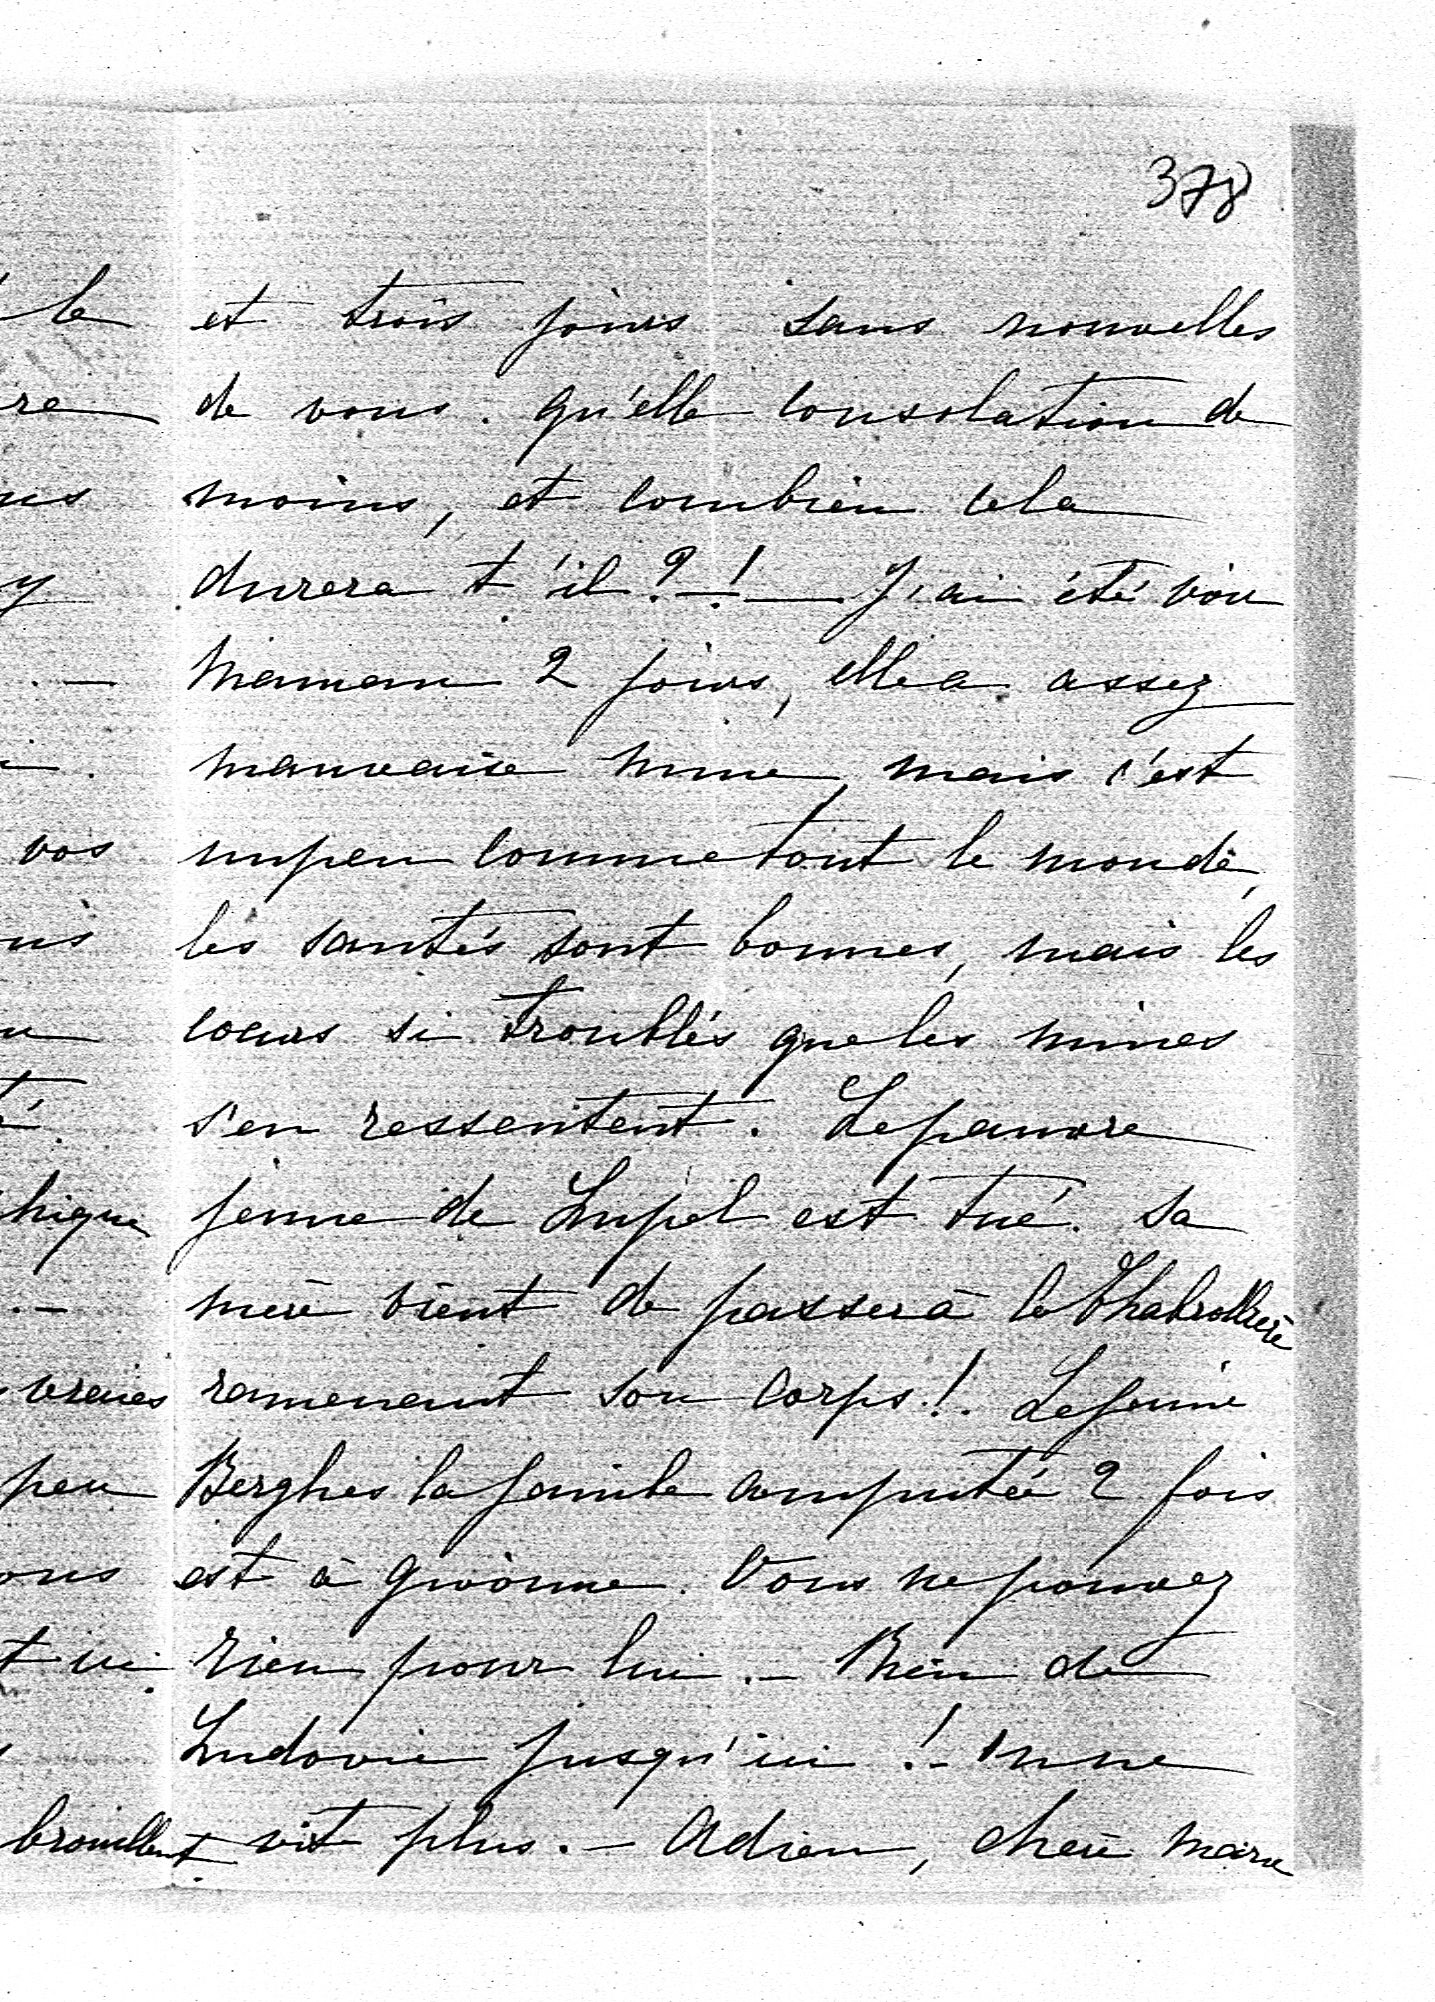 378
et trois jours sans nouvelles
de vous. qu'elle consolation de
moins, et combien cela
durera t'il ?! — J'ai été voir
Maman 2 jours, elle a assez
mauvaise mine, mais c'est
un peu comme tout le monde,
les santés sont bonnes, mais les
coeurs si troublés que les mines
s'en ressentent. Le pauvre
jeune de Lupel est tué. Sa
mère vient de passer à la
ramenant son corps !. Le jeune
Berghes la jambe amputée 2 fois
est à Givonne. Vous ne pouvez
rien pour lui. — Rien de
Ludovic jusqu'ici ! —
vit plus. — Adieu, chère Marie
le
re
us
y
. —
vos
us
hique
. —
vraies
peu
ous
t ici.
brouillent.